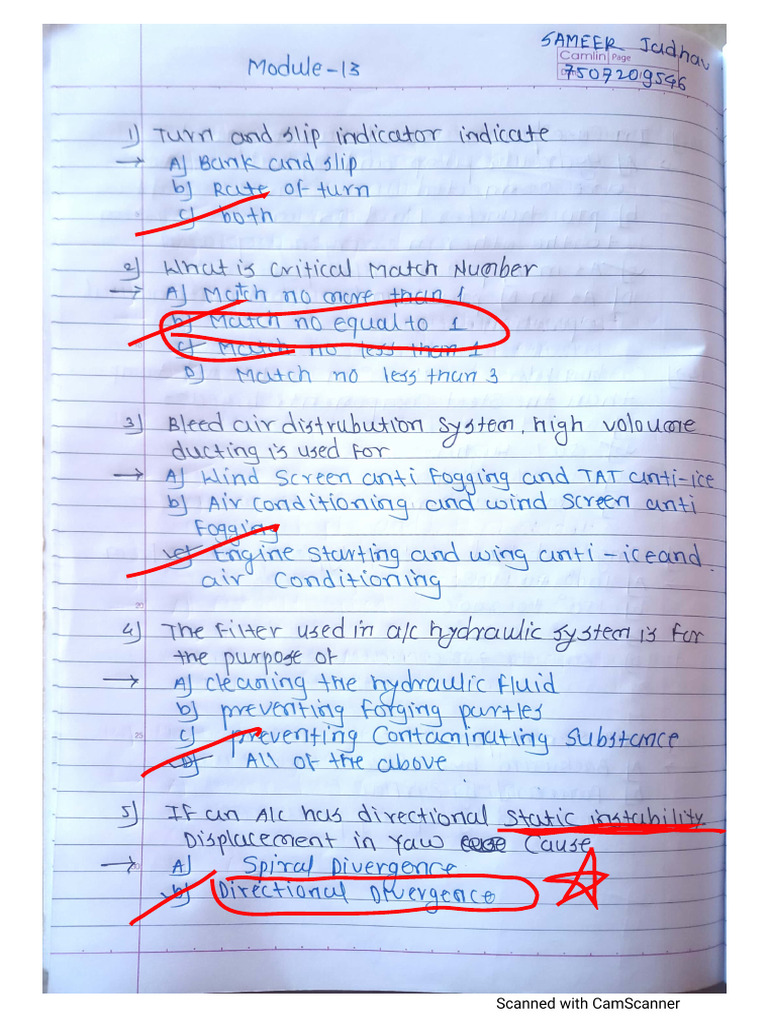 SAMEER Jadhav
Camlin Page
7507209546
Module-13
1) Turn and slip indicator indicate
→ A) Bank and slip
b) Rate of turn
c) both
2) What is critical Match Number
→ A) Match no more than 1
b) Match no equal to 1
c) Match no less than 1
D) Match no less than 3
3) Bleed air distrubution system, high voloume
ducting is used for
→ A) Wind screen anti fogging and TAT anti-ice
b) Air conditioning and wind screen anti
Fogging
c) Engine starting and wing anti-ice and
air conditioning
20
4) The filter used in a/c hydraulic system is for
the purpose of
→ A) cleaning the hydraulic fluid
b) preventing forging partles
25
c) preventing contaminating substance
D) All of the above
5) If an A/c has directional static instability
Displacement in yaw Cause
→ A) Spiral Divergence
b) Directional Divergence
Scanned with CamScanner